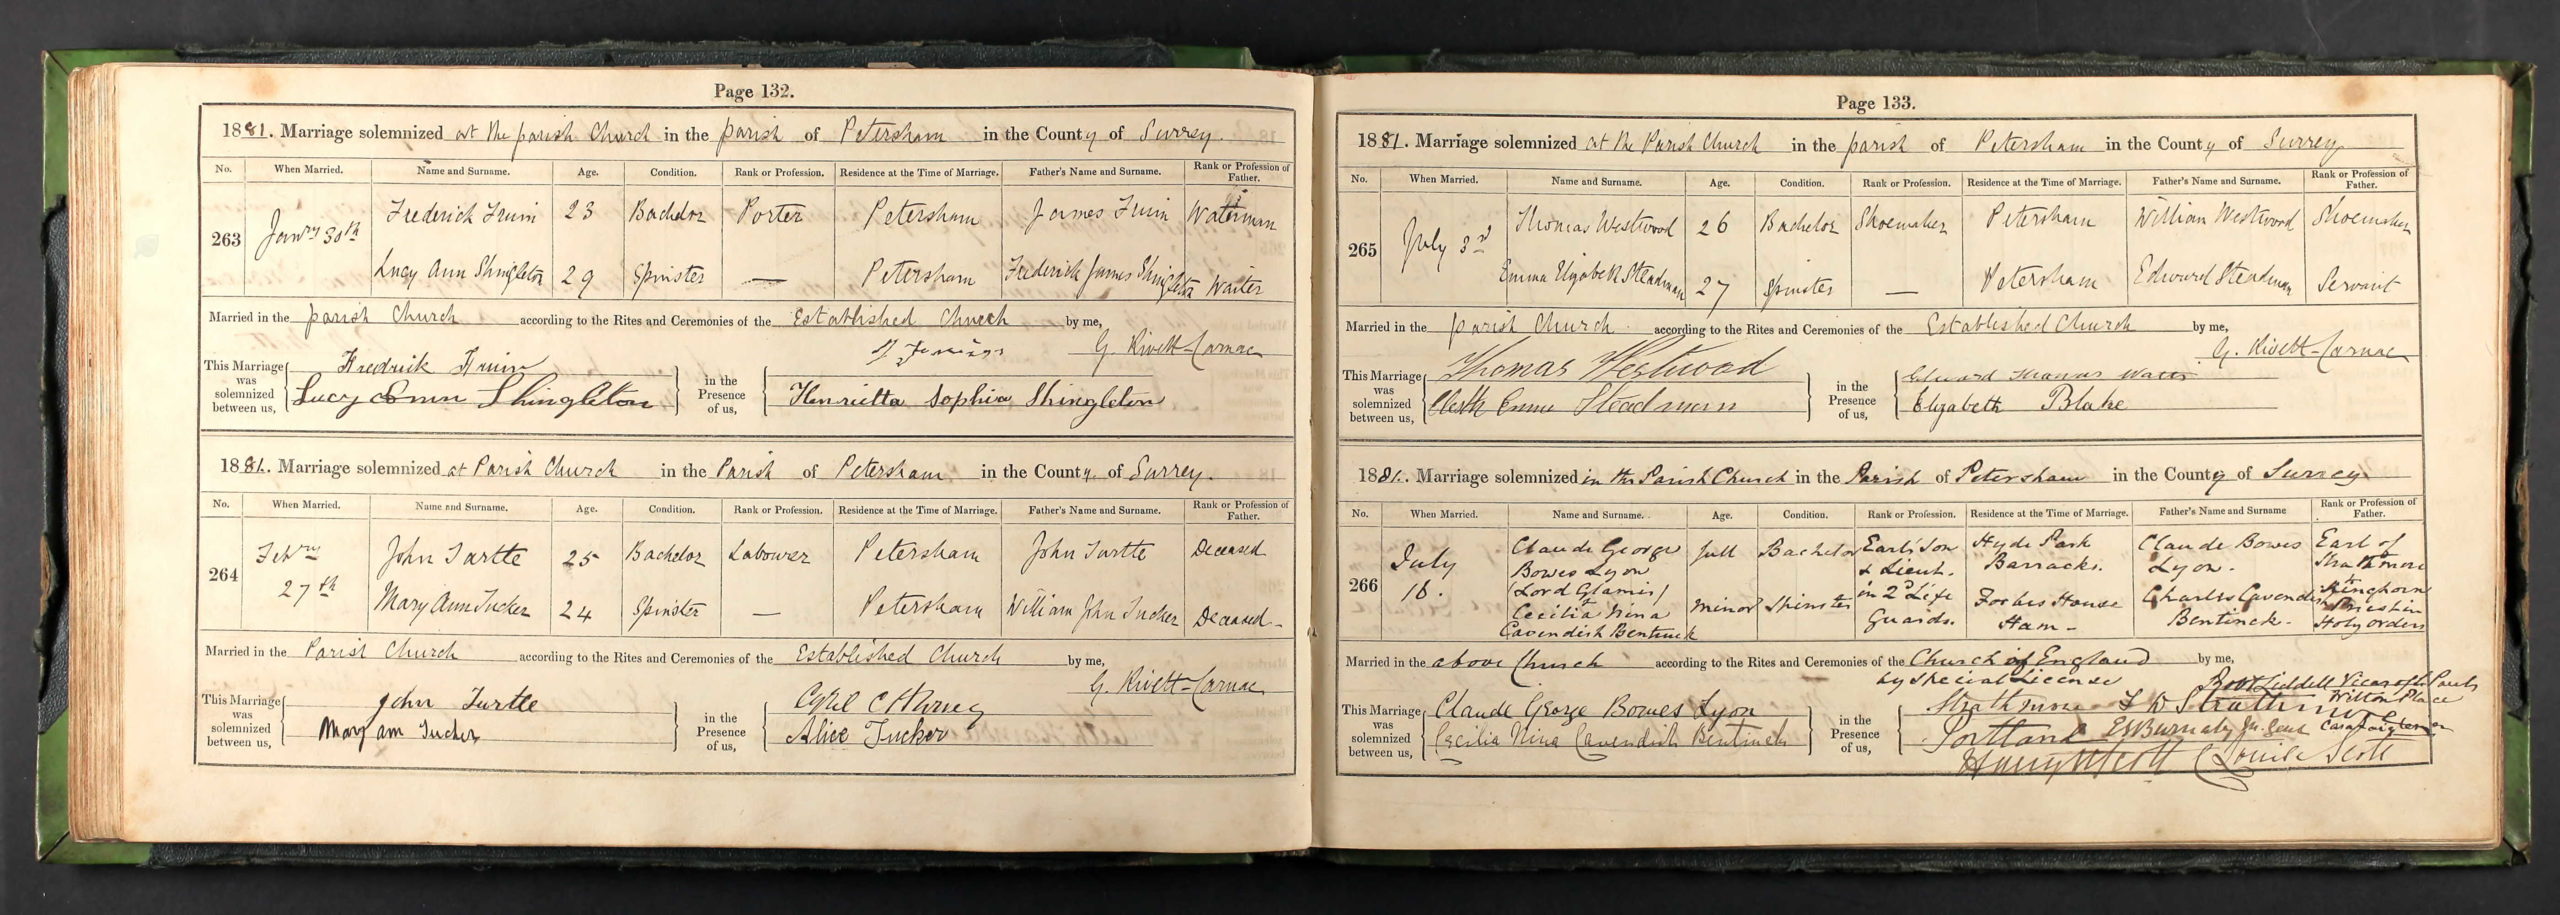 Page 132.
1881. Marriage solemnized at the parish Church in the parish of Petersham in the County of Surrey.
No. When Married. Name and Surname. Age. Condition. Rank or Profession. Residence at the Time of Marriage. Father's Name and Surname. Rank or Profession of Father.
263 Janry 30th Frederick Fruin 23 Bachelor Porter Petersham James Fruin Waterman
Lucy Ann Shingleton 29 Spinster — Petersham Frederick James Shingleton Waiter
Married in the parish Church according to the Rites and Ceremonies of the Established Church by me,
G. Rivett-Carnac
This Marriage was solemnized between us, Fredrick Fruin
Lucy Ann Shingleton
in the Presence of us,
Henrietta Sophia Shingleton
1881. Marriage solemnized at Parish Church in the Parish of Petersham in the County of Surrey.
No. When Married. Name and Surname. Age. Condition. Rank or Profession. Residence at the Time of Marriage. Father's Name and Surname. Rank or Profession of Father.
264 Febry 27th John Turtle 25 Bachelor Labourer Petersham John Turtle Deceased
Mary Ann Tucker 24 Spinster — Petersham William John Tucker Deceased
Married in the Parish Church according to the Rites and Ceremonies of the Established Church by me,
G. Rivett-Carnac
This Marriage was solemnized between us, John Turtle
Mary ann Tucker
in the Presence of us,
Alice Tucker
Page 133.
1881. Marriage solemnized at the Parish Church in the parish of Petersham in the County of Surrey
No. When Married. Name and Surname. Age. Condition. Rank or Profession. Residence at the Time of Marriage. Father's Name and Surname. Rank or Profession of Father.
265 July 3rd Thomas Westwood 26 Bachelor Shoemaker Petersham William Westwood Shoemaker
Emma Elizabeth Steadman 27 Spinster — Petersham Edward Steadman Servant
Married in the parish Church according to the Rites and Ceremonies of the Established Church by me,
G. Rivett-Carnac
This Marriage was solemnized between us, Thomas Westwood
Emma Steadman
in the Presence of us, Edward Thomas Watts
Elizabeth Blake
1881. Marriage solemnized in the Parish Church in the Parish of Petersham in the County of Surrey
No. When Married. Name and Surname. Age. Condition. Rank or Profession. Residence at the Time of Marriage. Father's Name and Surname Rank or Profession of Father.
266 July 16. Claude George Bowes Lyon (Lord Glamis) full Bachelor Earl's Son & Lieut. in 2d Life Guards. Hyde Park Barracks. Claude Bowes Lyon. Earl of Strathmore & Kinghorn
Cecilia Nina Cavendish Bentinck minor Spinster Forbes House Ham - Charles Cavendish Bentinck. Priest in Holy orders
Married in the above Church according to the Rites and Ceremonies of the Church of England by me,
by Special License
Robt Liddell Vicar of St Pauls Wilton Place
This Marriage was solemnized between us, Claude George Bowes Lyon
Cecilia Nina Cavendish Bentinck
in the Presence of us, Strathmore
Portland
Louisa Scott